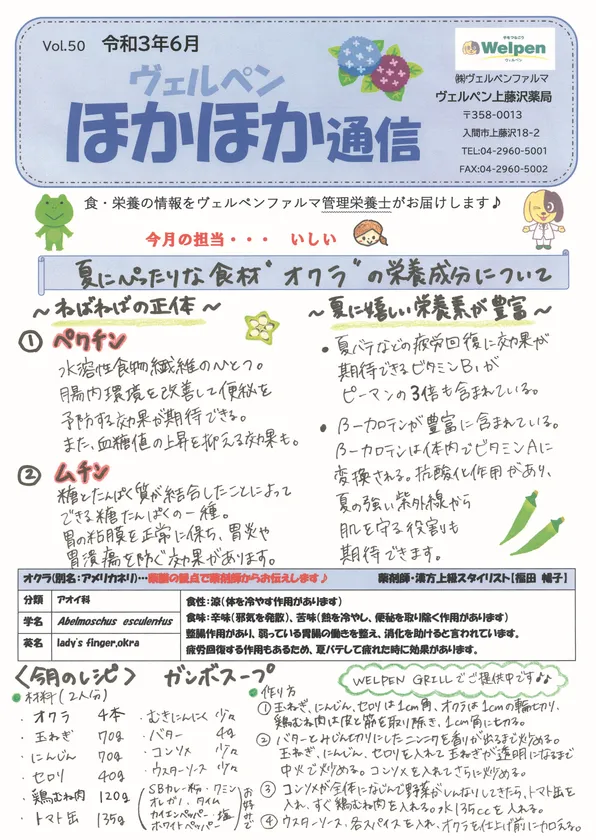 Vol.50 令和3年6月
手をつなごう
Welpen
ヴェルペン
ヴェルペン
ほかほか通信
㈱ヴェルペンファルマ
ヴェルペン上藤沢薬局
〒358-0013
入間市上藤沢18-2
TEL:04-2960-5001
FAX:04-2960-5002
食・栄養の情報をヴェルペンファルマ管理栄養士がお届けします♪
今月の担当・・・ いしい
夏にぴったりな食材"オクラ"の栄養成分について
～ねばねばの正体～
① ペクチン
水溶性食物繊維のひとつ。
腸内環境を改善して便秘を
予防する効果が期待できる。
また、血糖値の上昇を抑える効果も。
② ムチン
糖とたんぱく質が結合したことによって
できる糖たんぱくの一種。
胃の粘膜を正常に保ち、胃炎や
胃潰瘍を防ぐ効果があります。
～夏に嬉しい栄養素が豊富～
• 夏バテなどの疲労回復に効果が
期待できるビタミンB₁が
ピーマンの3倍も含まれている。
• β-カロテンが豊富に含まれている。
β-カロテンは体内でビタミンAに
変換される。抗酸化作用があり、
夏の強い紫外線から
肌を守る役割も
期待できます。
オクラ(別名:アメリカネリ)…薬膳の観点で薬剤師からお伝えします♪ 薬剤師・漢方上級スタイリスト【福田 幡子】
分類 アオイ科
学名 Abelmoschus esculentus
英名 lady's finger,okra
食性:涼(体を冷やす作用があります)
食味:辛味(邪気を発散)、苦味(熱を冷やし、便秘を取り除く作用があります)
整腸作用があり、弱っている胃腸の働きを整え、消化を助けると言われています。
疲労回復する作用もあるため、夏バテして疲れた時に効果があります。
〈今月のレシピ〉 ガンボスープ
WELPEN GRILLでご提供中です♪♪
● 材料(2人分)
・オクラ 4本
・玉ねぎ 70g
・にんじん 70g
・セロリ 40g
・鶏むね肉 120g
・トマト缶 135g
・むきにんにく 少々
・バター 4g
・コンソメ 少々
・ウスターソース 少々
(SBカレー粉・クミン
オレガノ、タイム
カイエンペッパー・塩
ホワイトペッパー) お好みで
● 作り方
① 玉ねぎ、にんじん、セロリは1cm角、オクラは1cmの輪切り、
鶏むね肉は皮と筋を取り除き、1cm角に切る。
② バターとみじん切りにしたニンニクを香りが出るまで炒める。
玉ねぎ、にんじん、セロリを入れて玉ねぎが透明になるまで
中火で炒める。コンソメを入れてさらに炒める。
③ コンソメが全体になじんで野菜がしんなりしてきたら、トマト缶を
入れ、すぐ鶏むね肉を入れる。水135ccを入れる。
④ ウスターソース、各スパイスを入れ、オクラを仕上げ前に加える。